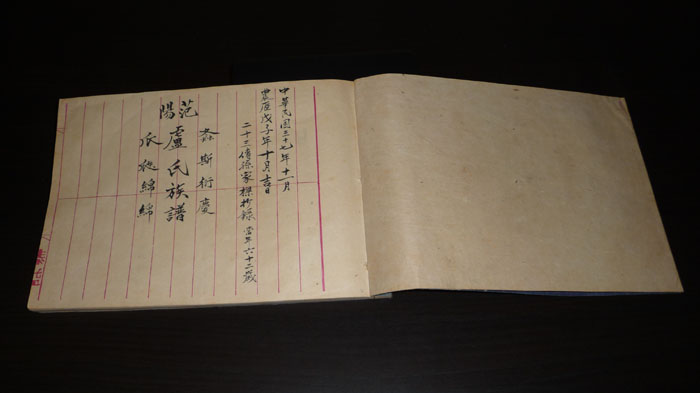 中華民國三十七年十一月
農厯戊子年十月吉日
二十三傳孫家樑抄錄 當年六十二歲
螽斯衍慶
范陽
盧氏族譜
瓜瓞綿綿